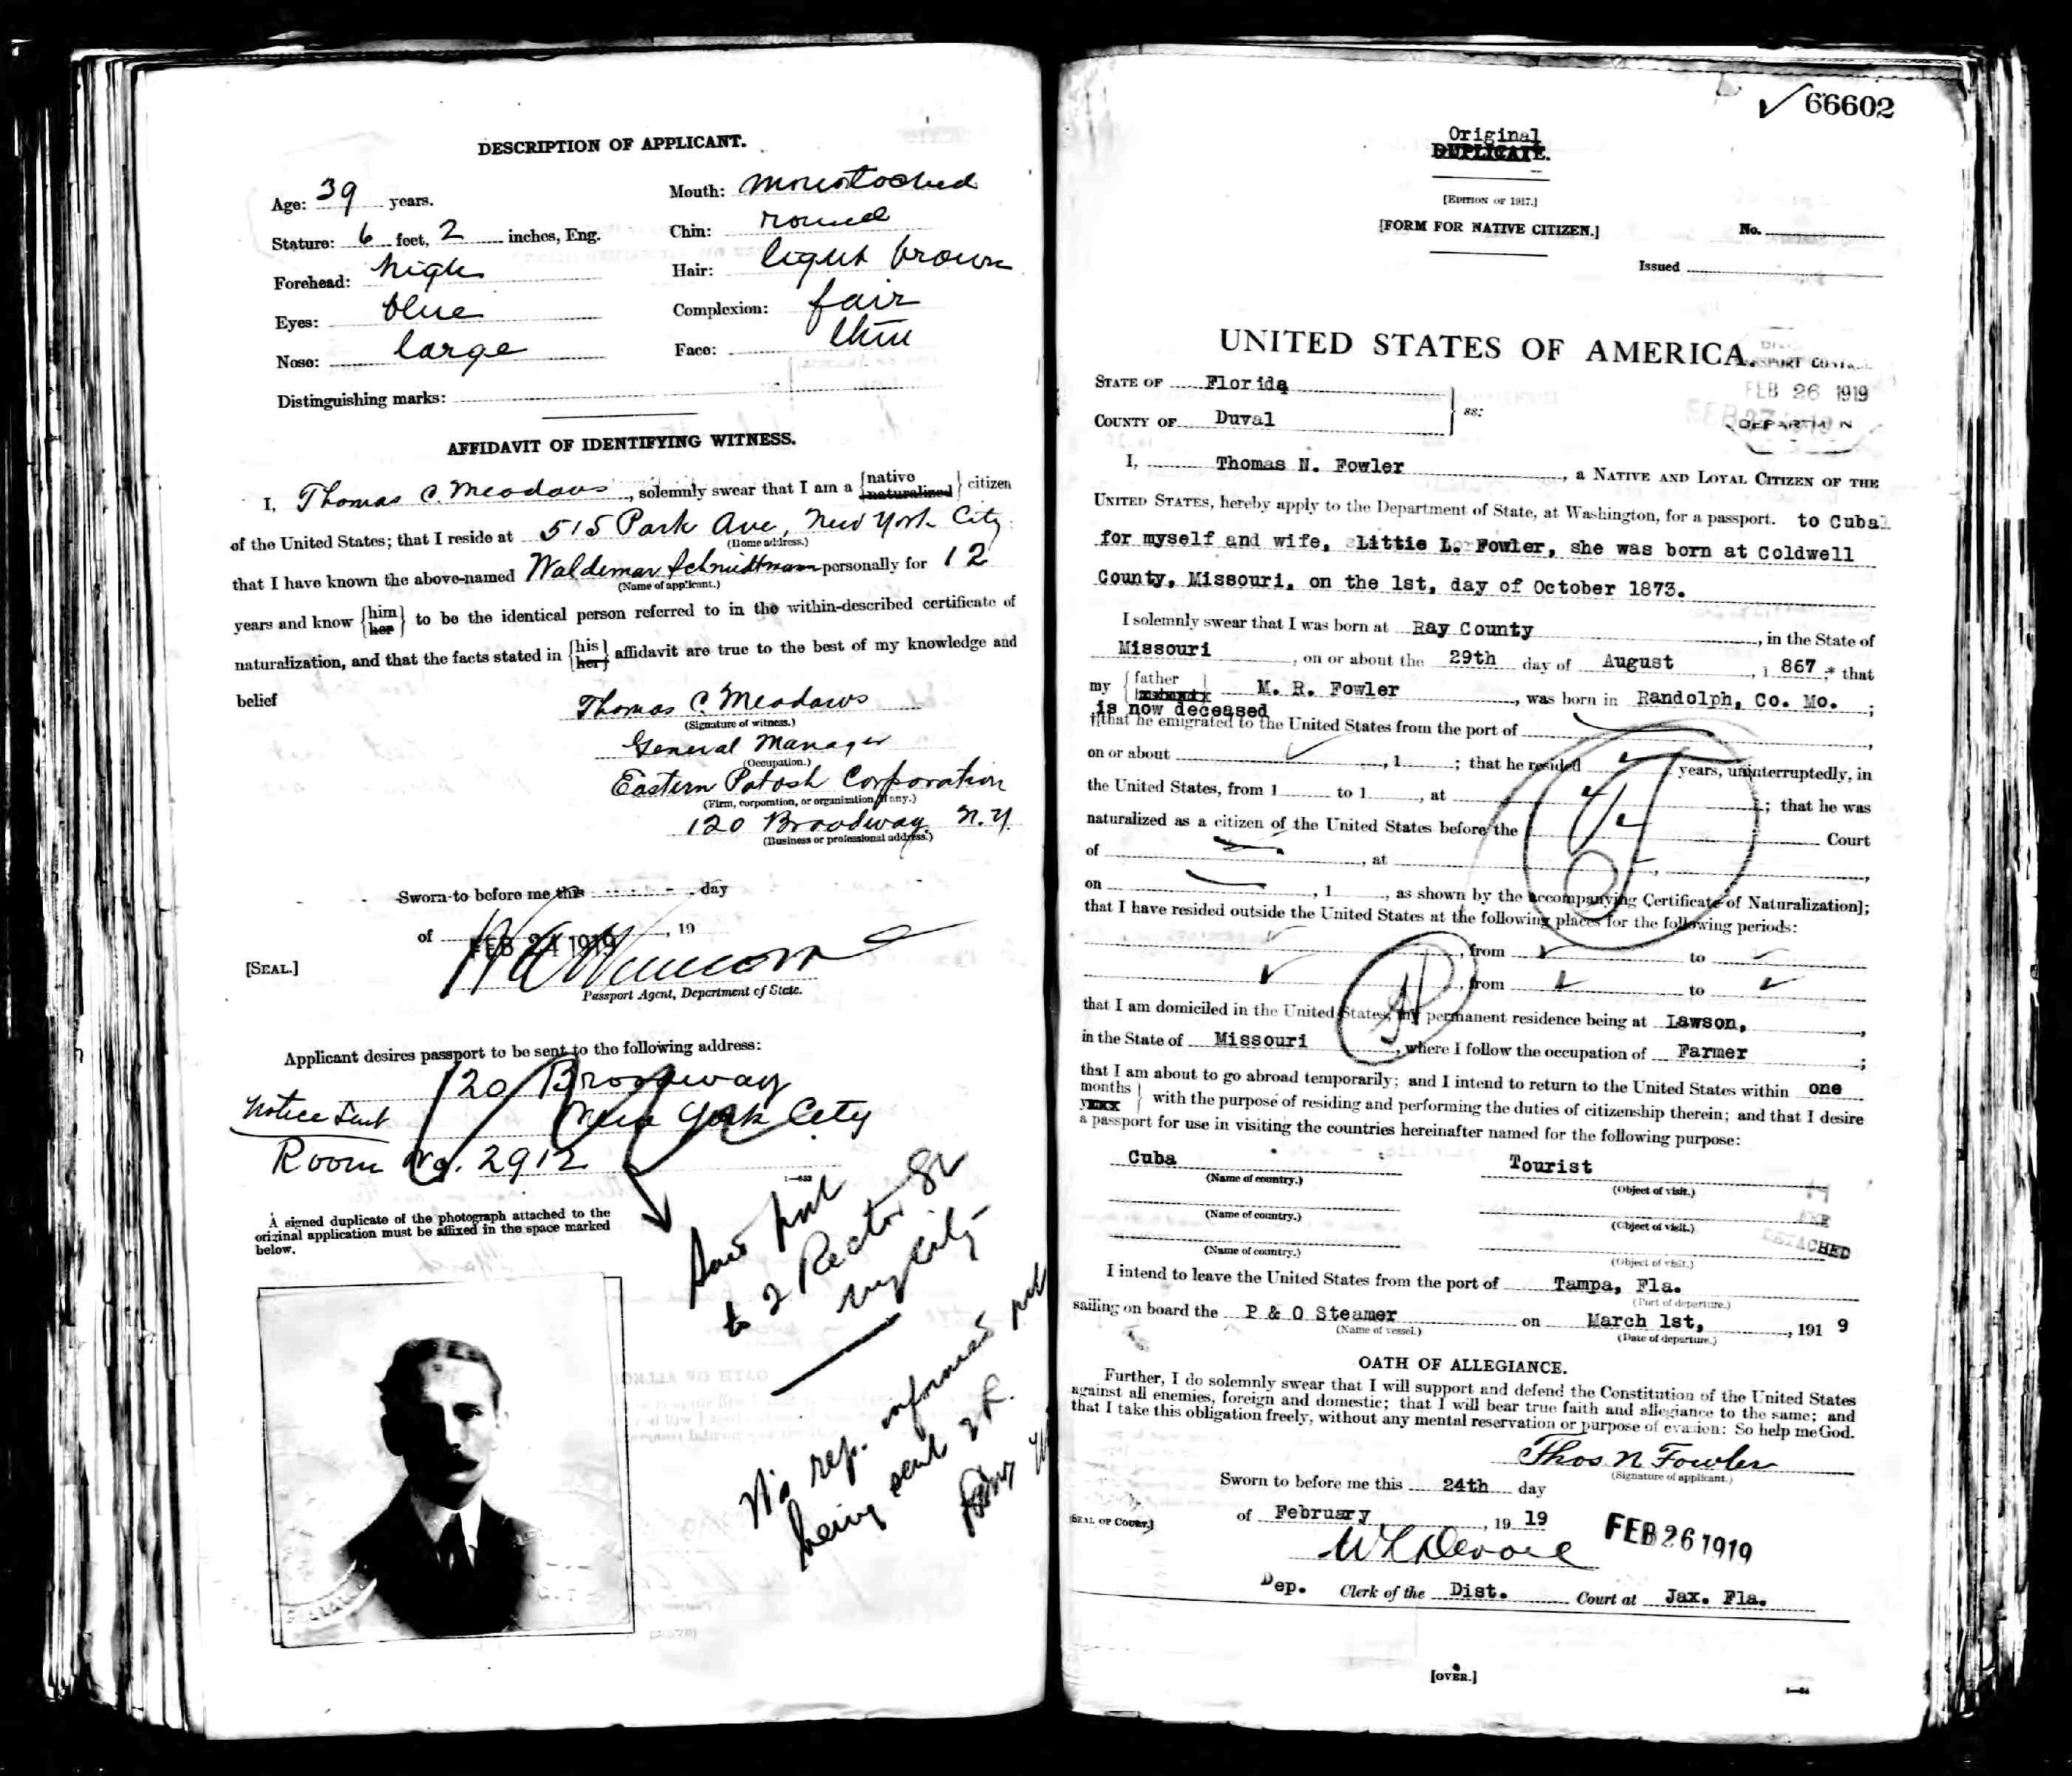 DESCRIPTION OF APPLICANT.
Age: 39 years.
Mouth: moustached
Stature: 6 feet, 2 inches, Eng.
Chin: round
Forehead: high
Hair: light brown
Eyes: blue
Complexion: fair
Nose: large
Face: thin
Distinguishing marks:
AFFIDAVIT OF IDENTIFYING WITNESS.
I, Thomas C. Meadows, solemnly swear that I am a {native naturalized} citizen
of the United States; that I reside at 515 Park Ave, New York City
(Home address.)
that I have known the above-named Waldemar Schmidtmann personally for 12
(Name of applicant.)
years and know {him her} to be the identical person referred to in the within-described certificate of
naturalization, and that the facts stated in {his her} affidavit are true to the best of my knowledge and
belief
Thomas C. Meadows
(Signature of witness.)
General Manager
(Occupation.)
Eastern Potash Corporation
(Firm, corporation, or organization, if any.)
120 Broadway, N.Y.
(Business or professional address.)
Sworn to before me this day
of FEB 24 1919, 19
[SEAL.]
Passport Agent, Department of State.
Applicant desires passport to be sent to the following address:
120 Broadway
Notice Sent New York City
Room No. 2912
1—633
A signed duplicate of the photograph attached to the
original application must be affixed in the space marked
below.
to 2 Rector St
City
rep. informed
being sent 2 R.
66602
Original
DUPLICATE.
[EDITION OF 1917.]
[FORM FOR NATIVE CITIZEN.]
No.
Issued
UNITED STATES OF AMERICA.
STATE OF Florida
FEB 26 1919
COUNTY OF Duval
ss:
FEB 27 1919
I, Thomas N. Fowler, a NATIVE AND LOYAL CITIZEN OF THE
UNITED STATES, hereby apply to the Department of State, at Washington, for a passport. to Cuba
for myself and wife, Littie L. Fowler, she was born at Coldwell
County, Missouri, on the 1st, day of October 1873.
I solemnly swear that I was born at Ray County, in the State of
Missouri, on or about the 29th day of August, 1 867,* that
my {father M. R. Fowler, was born in Randolph, Co. Mo.;
is now deceased
†[that he emigrated to the United States from the port of,
on or about, 1; that he resided years, uninterruptedly, in
the United States, from 1 to 1, at; that he was
naturalized as a citizen of the United States before the Court
of, at,
on, 1, as shown by the accompanying Certificate of Naturalization];
that I have resided outside the United States at the following places for the following periods:
, from to
, from to
that I am domiciled in the United States, my permanent residence being at Lawson,
in the State of Missouri, where I follow the occupation of Farmer;
that I am about to go abroad temporarily; and I intend to return to the United States within one
months } with the purpose of residing and performing the duties of citizenship therein; and that I desire
a passport for use in visiting the countries hereinafter named for the following purpose:
Cuba Tourist
(Name of country.) (Object of visit.)
(Name of country.) (Object of visit.)
DETACHED
(Name of country.) (Object of visit.)
I intend to leave the United States from the port of Tampa, Fla.
(Port of departure.)
sailing on board the P & O Steamer on March 1st, 191 9
(Name of vessel.) (Date of departure.)
OATH OF ALLEGIANCE.
Further, I do solemnly swear that I will support and defend the Constitution of the United States
against all enemies, foreign and domestic; that I will bear true faith and allegiance to the same; and
that I take this obligation freely, without any mental reservation or purpose of evasion: So help me God.
Thos N Fowler
(Signature of applicant.)
Sworn to before me this 24th day
[SEAL OF COURT.]
of February, 19 19
FEB 26 1919
Dep. Clerk of the Dist. Court at Jax. Fla.
[OVER.]